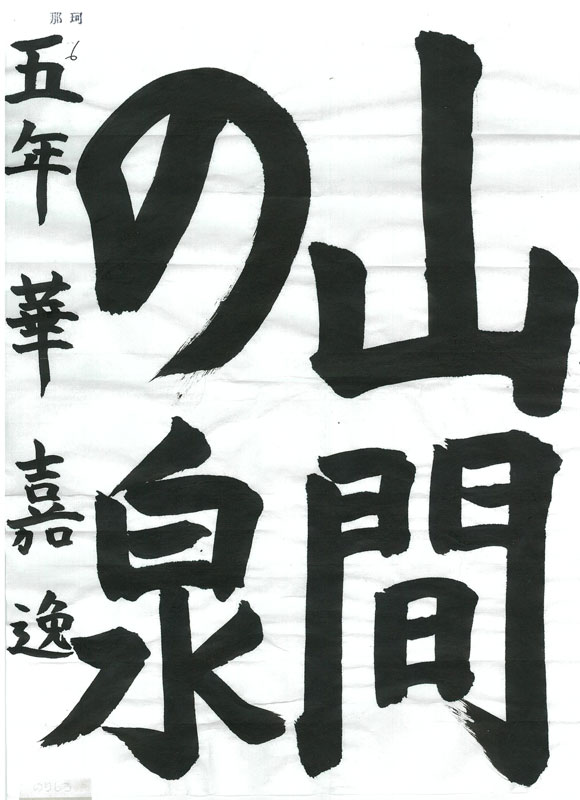 那珂
山間
の泉
五年華嘉逸
6